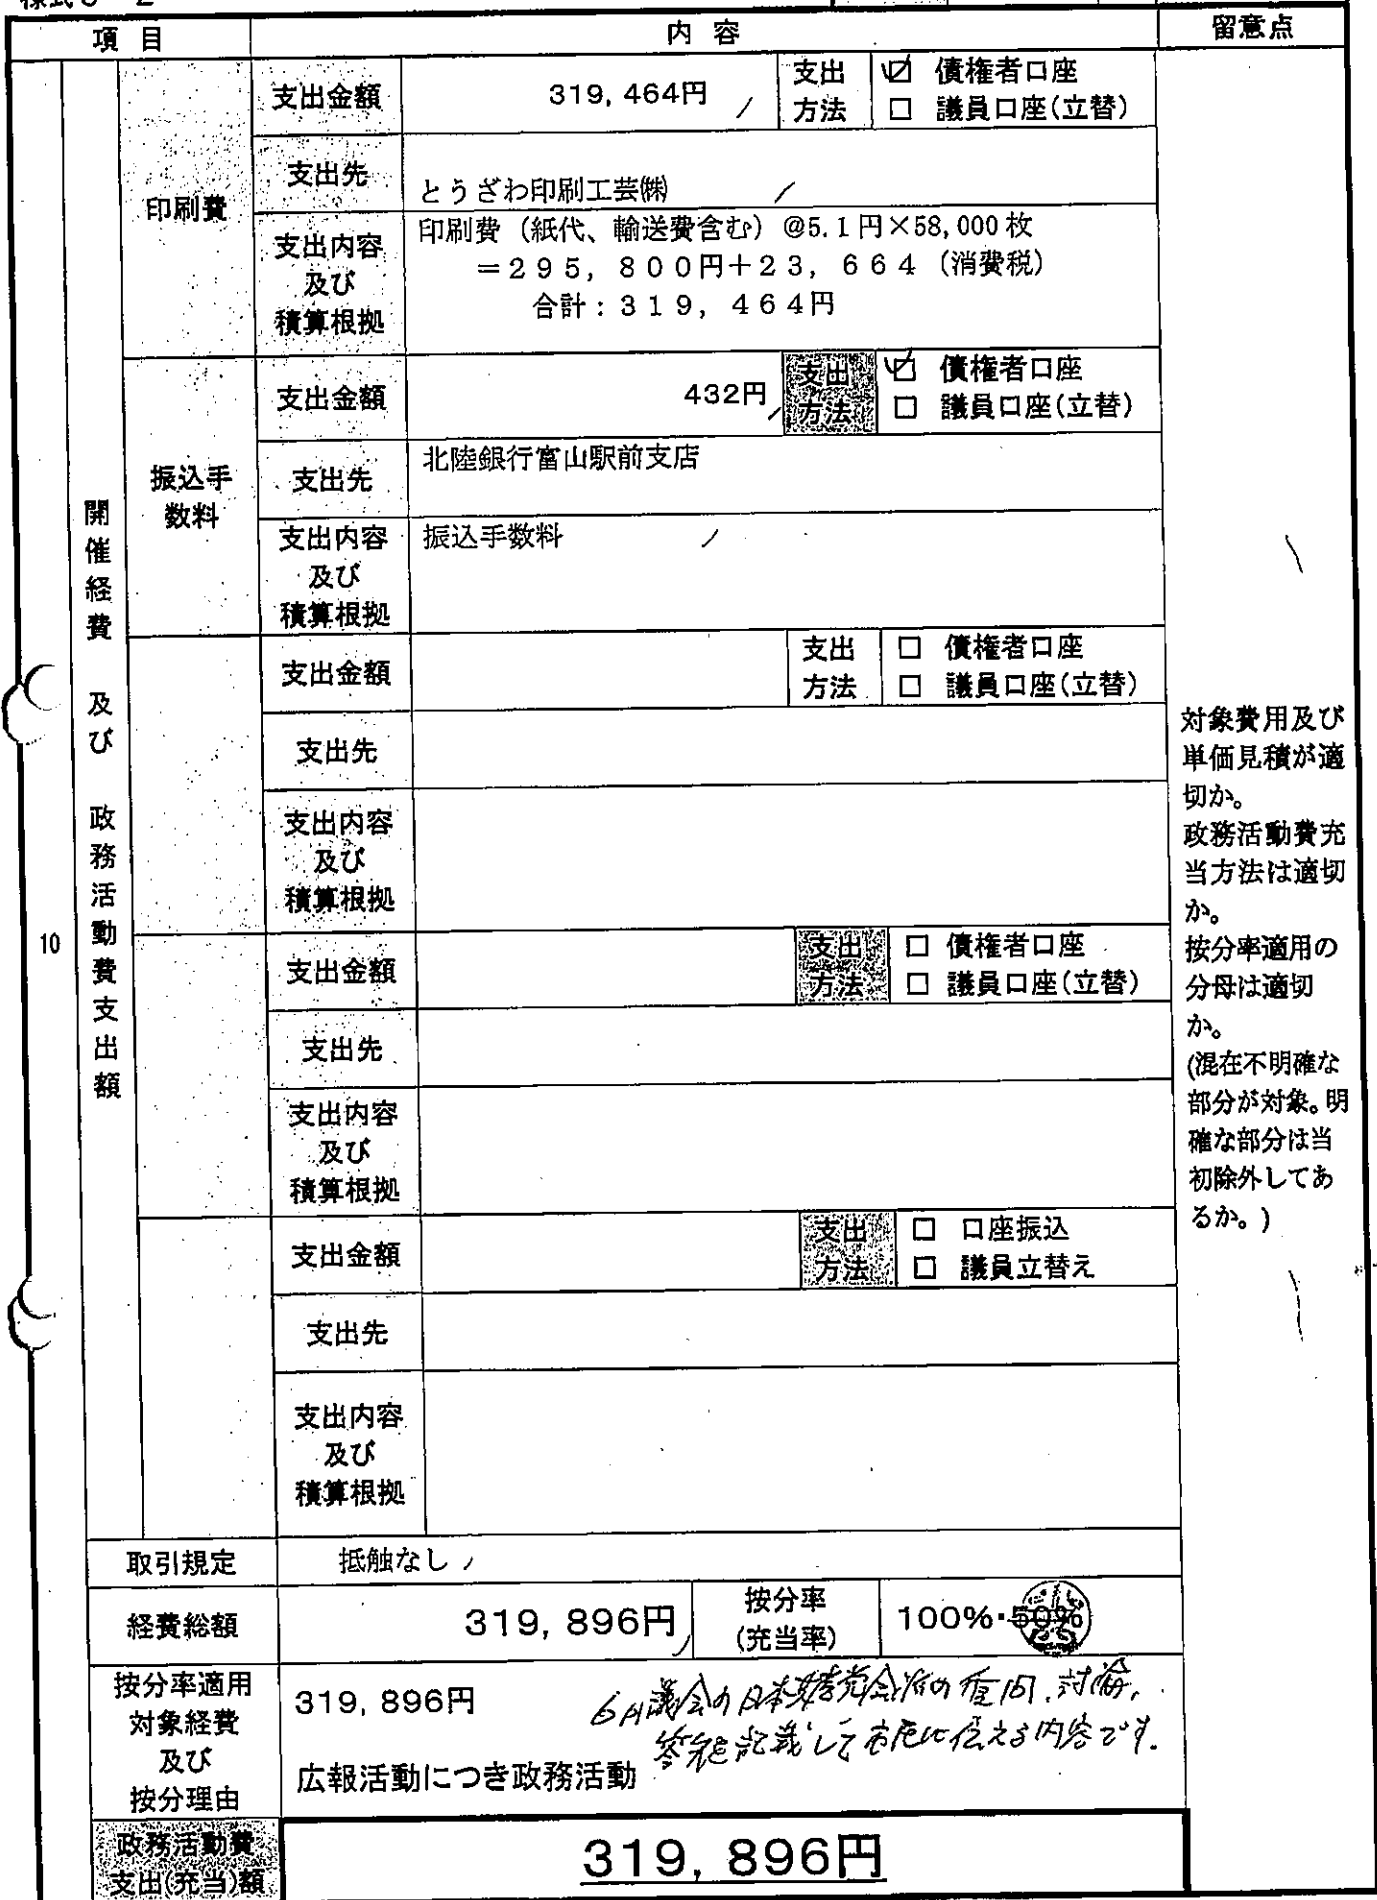 項 目
内 容
留意点
10
開催経費 及び 政務活動費支出額
印刷費
支出金額
319,464円
支出
方法
☑ 債権者口座
□ 議員口座(立替)
支出先
とうざわ印刷工芸㈱
支出内容
及び
積算根拠
印刷費（紙代、輸送費含む）@5.1円×58,000枚
＝２９５，８００円＋２３，６６４（消費税）
合計：３１９，４６４円
振込手
数料
支出金額
432円
支出
方法
☑ 債権者口座
□ 議員口座(立替)
支出先
北陸銀行富山駅前支店
支出内容
及び
積算根拠
振込手数料
支出金額
支出
方法
□ 債権者口座
□ 議員口座(立替)
支出先
支出内容
及び
積算根拠
支出金額
支出
方法
□ 債権者口座
□ 議員口座(立替)
支出先
支出内容
及び
積算根拠
支出金額
支出
方法
□ 口座振込
□ 議員立替え
支出先
支出内容
及び
積算根拠
対象費用及び
単価見積が適
切か。
政務活動費充
当方法は適切
か。
按分率適用の
分母は適切
か。
(混在不明確な
部分が対象。明
確な部分は当
初除外してあ
るか。)
取引規定
抵触なし
経費総額
319,896円
按分率
(充当率)
100%・50%
按分率適用
対象経費
及び
按分理由
319,896円
6月議会の日本共産党会派の質問、討論、
答弁を記載して市民に伝える内容です。
広報活動につき政務活動
政務活動費
支出(充当)額
319,896円